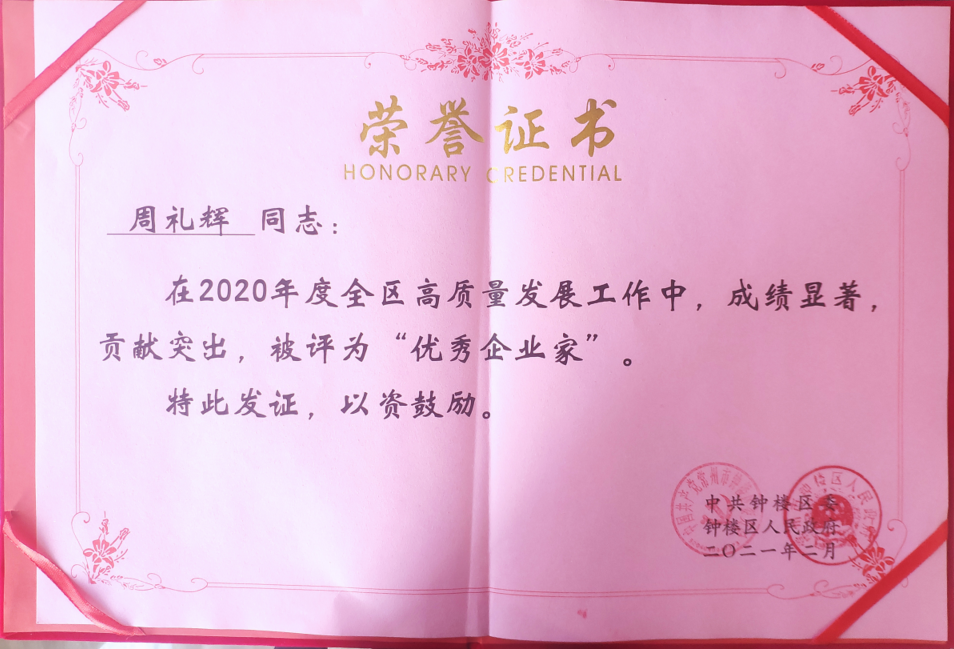 荣誉证书
HONORARY CREDENTIAL
周礼辉 同志：
在2020年度全区高质量发展工作中，成绩显著，
贡献突出，被评为“优秀企业家”。
特此发证，以资鼓励。
中共钟楼区委
钟楼区人民政府
二〇二一年二月